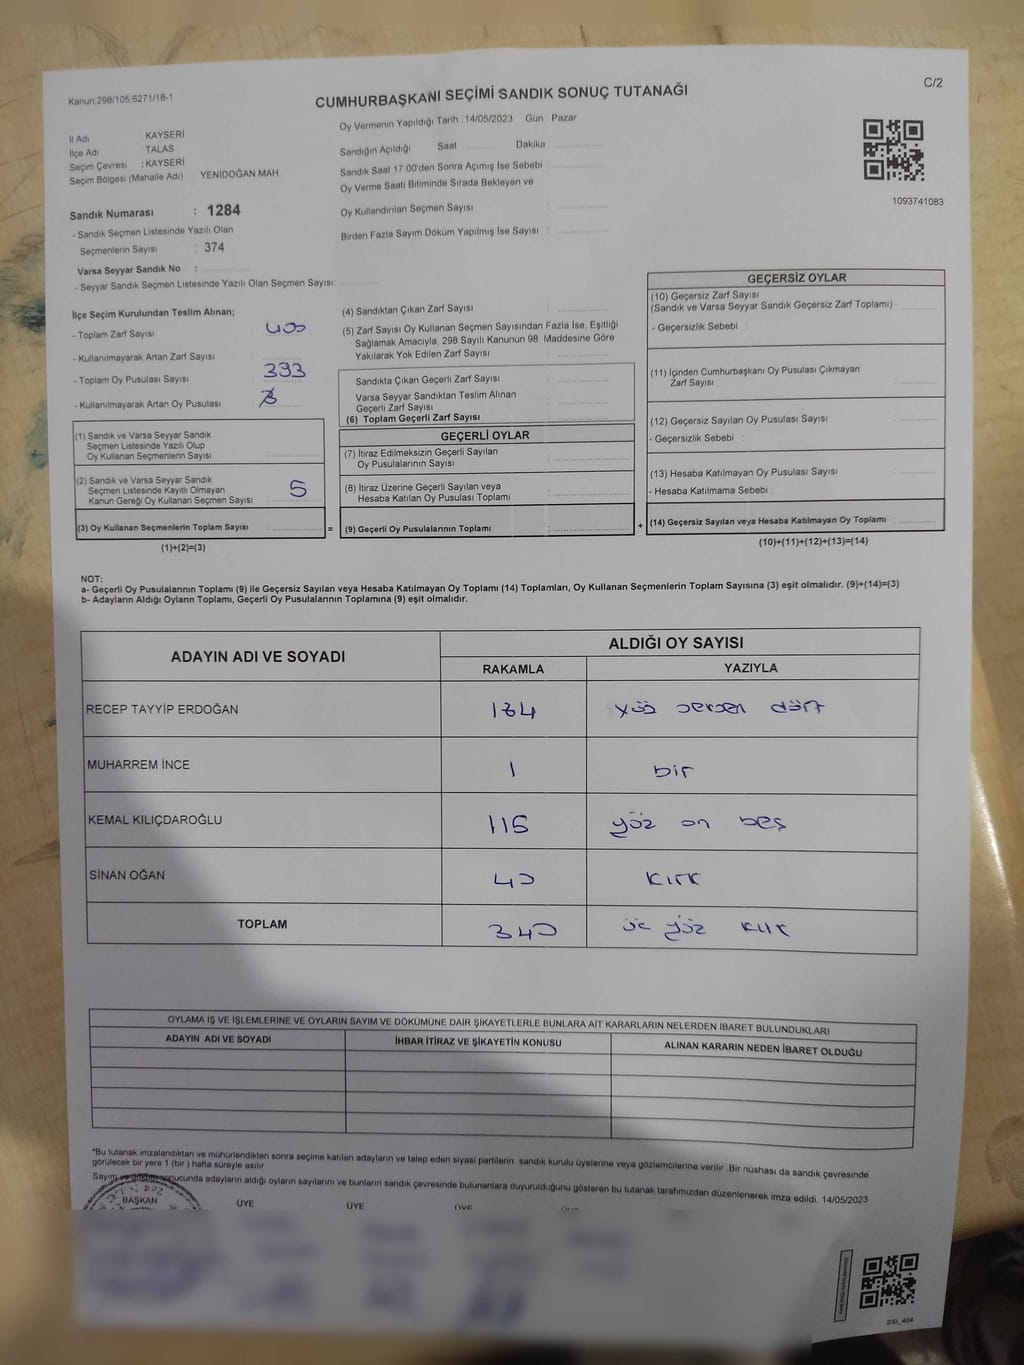 Kanun:298/105;6271/18-1
CUMHURBAŞKANI SEÇİMİ SANDIK SONUÇ TUTANAĞI
C/2
İl Adı KAYSERİ
İlçe Adı TALAS
Seçim Çevresi : KAYSERİ
Seçim Bölgesi (Mahalle Adı) YENİDOĞAN MAH
Sandık Numarası : 1284
- Sandık Seçmen Listesinde Yazılı Olan
Seçmenlerin Sayısı : 374
Varsa Seyyar Sandık No :
- Seyyar Sandık Seçmen Listesinde Yazılı Olan Seçmen Sayısı:
Oy Vermenin Yapıldığı Tarih : 14/05/2023 Gün : Pazar
Sandığın Açıldığı Saat Dakika
Sandık Saat 17:00'den Sonra Açımış İse Sebebi :
Oy Verme Saati Bitiminde Sırada Bekleyen ve
Oy Kullandırılan Seçmen Sayısı :
Birden Fazla Sayım Döküm Yapılmış İse Sayısı :
1093741083
İlçe Seçim Kurulundan Teslim Alınan;
- Toplam Zarf Sayısı : 400
- Kullanılmayarak Artan Zarf Sayısı :
- Toplam Oy Pusulası Sayısı : 393
- Kullanılmayarak Artan Oy Pusulası :
(1) Sandık ve Varsa Seyyar Sandık
Seçmen Listesinde Yazılı Olup
Oy Kullanan Seçmenlerin Sayısı :
(2) Sandık ve Varsa Seyyar Sandık
Seçmen Listesinde Kayıtlı Olmayan
Kanun Gereği Oy Kullanan Seçmen Sayısı : 5
(3) Oy Kullanan Seçmenlerin Toplam Sayısı :
(1)+(2)=(3)
(4) Sandıktan Çıkan Zarf Sayısı :
(5) Zarf Sayısı Oy Kullanan Seçmen Sayısından Fazla İse, Eşitliği
Sağlamak Amacıyla, 298 Sayılı Kanunun 98. Maddesine Göre
Yakılarak Yok Edilen Zarf Sayısı :
Sandıkta Çıkan Geçerli Zarf Sayısı :
Varsa Seyyar Sandıktan Teslim Alınan
Geçerli Zarf Sayısı :
(6) Toplam Geçerli Zarf Sayısı :
GEÇERLİ OYLAR
(7) İtiraz Edilmeksizin Geçerli Sayılan
Oy Pusulalarının Sayısı :
(8) İtiraz Üzerine Geçerli Sayılan veya
Hesaba Katılan Oy Pusulası Toplamı :
= (9) Geçerli Oy Pusulalarının Toplamı :
GEÇERSİZ OYLAR
(10) Geçersiz Zarf Sayısı
(Sandık ve Varsa Seyyar Sandık Geçersiz Zarf Toplamı) :
- Geçersizlik Sebebi :
(11) İçinden Cumhurbaşkanı Oy Pusulası Çıkmayan
Zarf Sayısı :
(12) Geçersiz Sayılan Oy Pusulası Sayısı :
- Geçersizlik Sebebi :
(13) Hesaba Katılmayan Oy Pusulası Sayısı :
- Hesaba Katılmama Sebebi :
+ (14) Geçersiz Sayılan veya Hesaba Katılmayan Oy Toplamı :
(10)+(11)+(12)+(13)=(14)
NOT:
a- Geçerli Oy Pusulalarının Toplamı (9) ile Geçersiz Sayılan veya Hesaba Katılmayan Oy Toplamı (14) Toplamları, Oy Kullanan Seçmenlerin Toplam Sayısına (3) eşit olmalıdır. (9)+(14)=(3)
b- Adayların Aldığı Oyların Toplamı, Geçerli Oy Pusulalarının Toplamına (9) eşit olmalıdır.
ADAYIN ADI VE SOYADI ALDIĞI OY SAYISI
RAKAMLA YAZIYLA
RECEP TAYYİP ERDOĞAN 184 yüz seksen dört
MUHARREM İNCE 1 bir
KEMAL KILIÇDAROĞLU 115 yüz on beş
SİNAN OĞAN 40 kırk
TOPLAM 340 üç yüz kırk
OYLAMA İŞ VE İŞLEMLERİNE VE OYLARIN SAYIM VE DÖKÜMÜNE DAİR ŞİKAYETLERLE BUNLARA AİT KARARLARIN NELERDEN İBARET BULUNDUKLARI
ADAYIN ADI VE SOYADI İHBAR İTİRAZ VE ŞİKAYETİN KONUSU ALINAN KARARIN NEDEN İBARET OLDUĞU
"Bu tutanak imzalandıktan ve mühürlendikten sonra seçime katılan adayların ve talep eden siyasi partilerin sandık kurulu üyelerine veya gözlemcilerine verilir. Bir nüshası da sandık çevresinde
görülecek bir yere 1 (bir) hafta süreyle asılır.
Sayım ve döküm sonucunda adayların aldığı oyların sayılarını ve bunların sandık çevresinde bulunanlara duyurulduğunu gösteren bu tutanak tarafımızdan düzenlenerek imza edildi. 14/05/2023
BAŞKAN ÜYE ÜYE ÜYE ÜYE
SSI_404